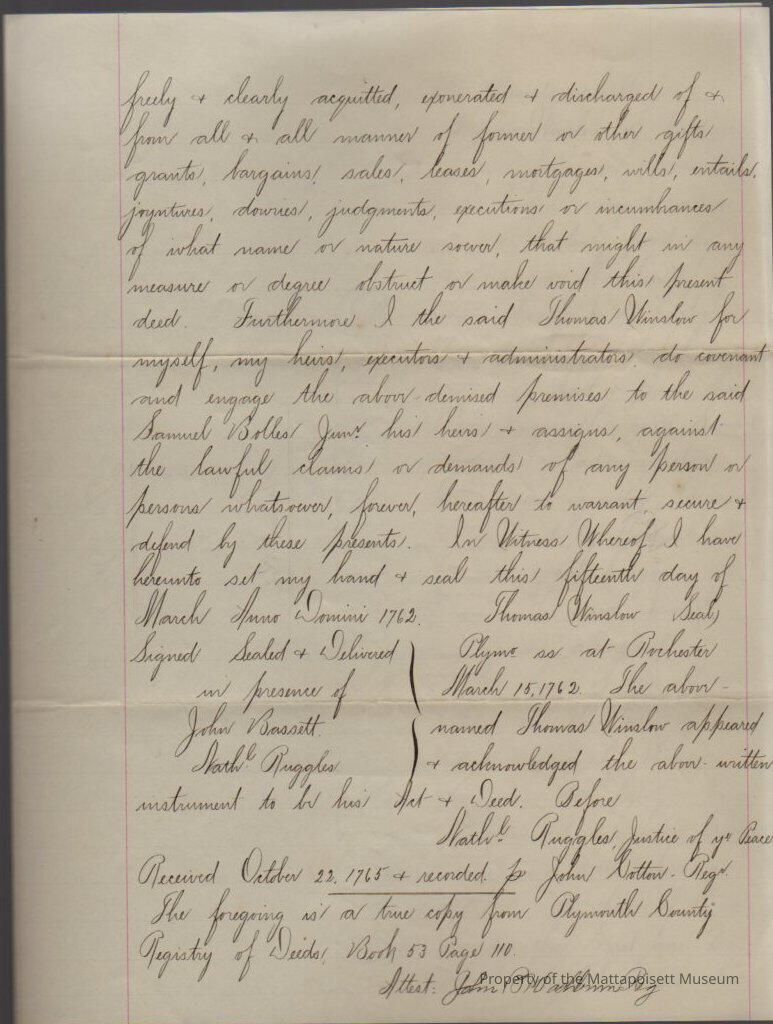 freely & clearly acquitted, exonerated & discharged of &
from all & all manner of former or other gifts
grants, bargains, sales, leases, mortgages, wills, entails,
joyntures, dowries, judgments, executions or incumbrances
of what name or nature soever, that might in any
measure or degree obstruct or make void this present
deed. Furthermore I the said Thomas Winslow for
myself, my heirs, executors & administrators, do covenant
and engage the above-demised premises to the said
Samuel Bolles Junr. his heirs & assigns, against
the lawful claims or demands of any person or
persons whatsoever, forever, hereafter to warrant, secure &
defend by these presents. In Witness Whereof I have
hereunto set my hand & seal this fifteenth day of
March Anno Domini 1762. Thomas Winslow (Seal)
Signed Sealed & Delivered
in presence of
John Bassett.
Nathl. Ruggles
Plymo ss at Rochester
March 15, 1762. The above-
named Thomas Winslow appeared
& acknowledged the above-written
instrument to be his Act & Deed. Before
Nathl. Ruggles, Justice of ye Peace
Received October 22, 1765 & recorded. p John Cotton- Regr.
The foregoing is a true copy from Plymouth County
Registry of Deeds, Book 53 Page 110.
Attest: John Washburn Reg
Property of the Mattapoisett Museum